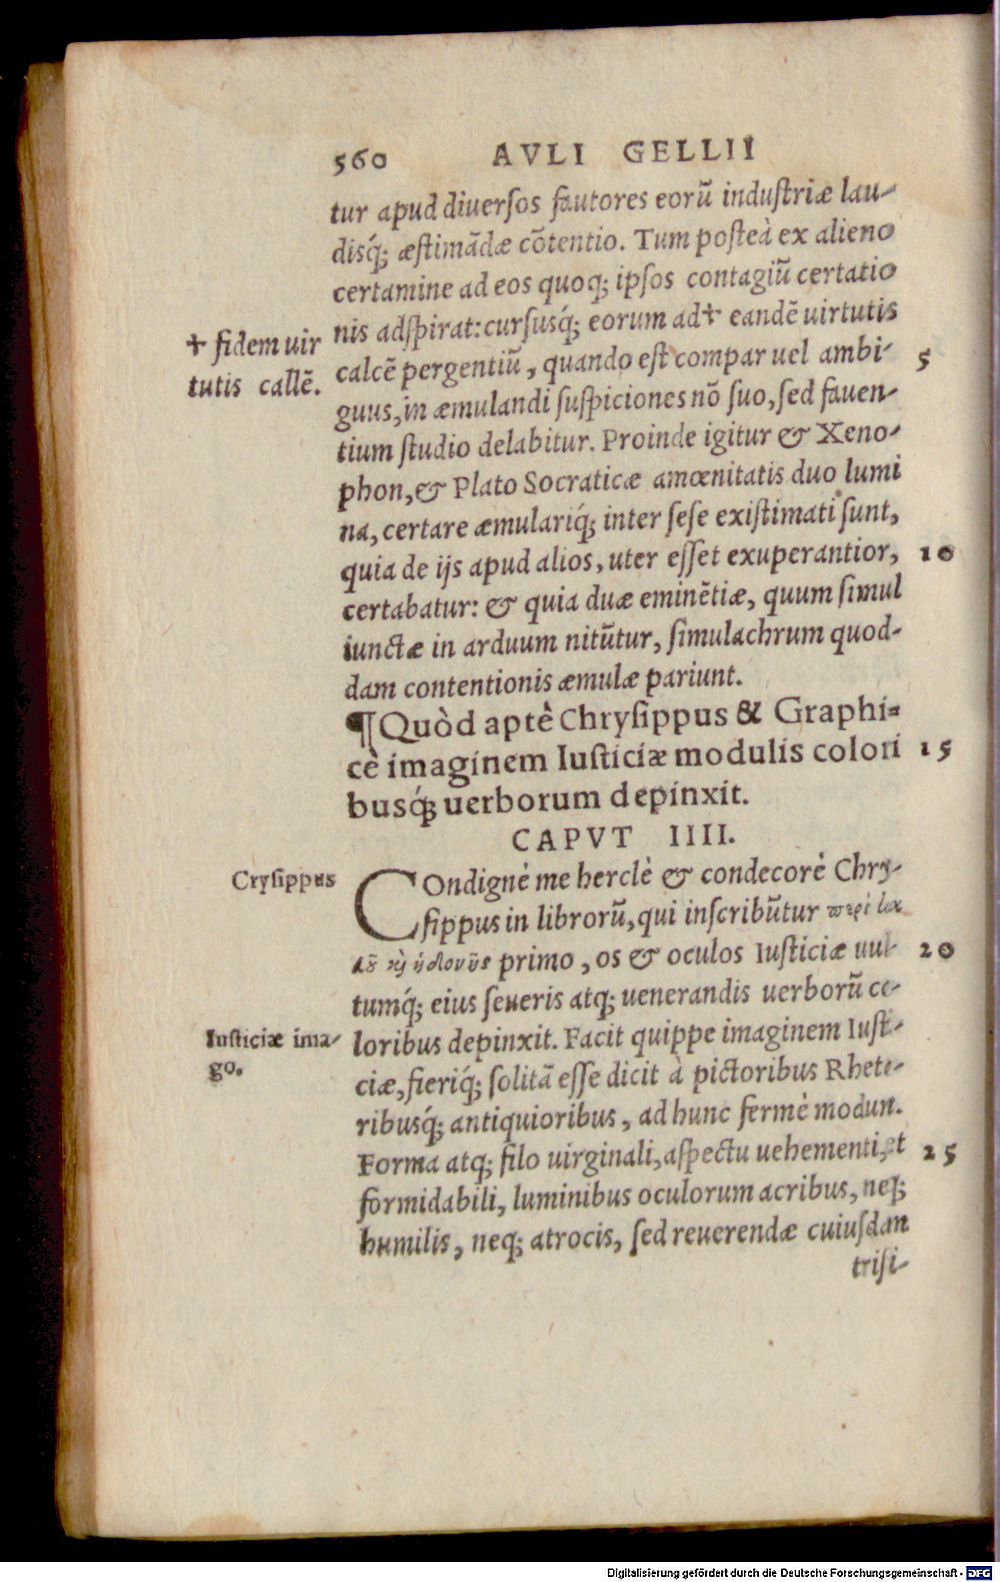 560 AVLI GELLII
tur apud diuersos fautores eorū industriæ lau-
disq́; æstimādæ cōtentio. Tum posteà ex alieno
certamine ad eos quoq; ipsos contagiū certatio
nis adspirat: cursusq́; eorum ad ✝ eandē uirtutis
✝ fidem uir
tutis callē.
calcē pergentiū, quando est compar uel ambi- 5
guus, in æmulandi suspiciones nō suo, sed fauen-
tium studio delabitur. Proinde igitur & Xeno-
phon, & Plato Socraticæ amœnitatis duo lumi
na, certare æmulariq́; inter sese existimati sunt,
quia de ijs apud alios, uter esset exuperantior, 10
certabatur: & quia duæ eminētiæ, quum simul
iunctæ in arduum nitūtur, simulachrum quod-
dam contentionis æmulæ pariunt.
¶Quòd aptè Chrysippus & Graphi-
cè imaginem Iusticiæ modulis colori 15
busq́; uerborum depinxit.
CAPVT IIII.
Crysippus
COndignè me herclè & condecorè Chry-
sippus in librorū, qui inscribūtur περὶ κα
λοῦ καὶ ἡδονῆς primo, os & oculos Iusticiæ uul- 20
tumq́; eius seueris atq; uenerandis uerborū co-
Iusticiæ ima-
go.
loribus depinxit. Facit quippe imaginem Iusti-
ciæ, fieriq́; solitā esse dicit à pictoribus Rheto-
ribusq́; antiquioribus, ad hunc fermè modum.
Forma atq; filo uirginali, aspectu uehementi, et 25
formidabili, luminibus oculorum acribus, neq;
humilis, neq; atrocis, sed reuerendæ cuiusdam
trisi-
Digitalisierung gefördert durch die Deutsche Forschungsgemeinschaft - DFG